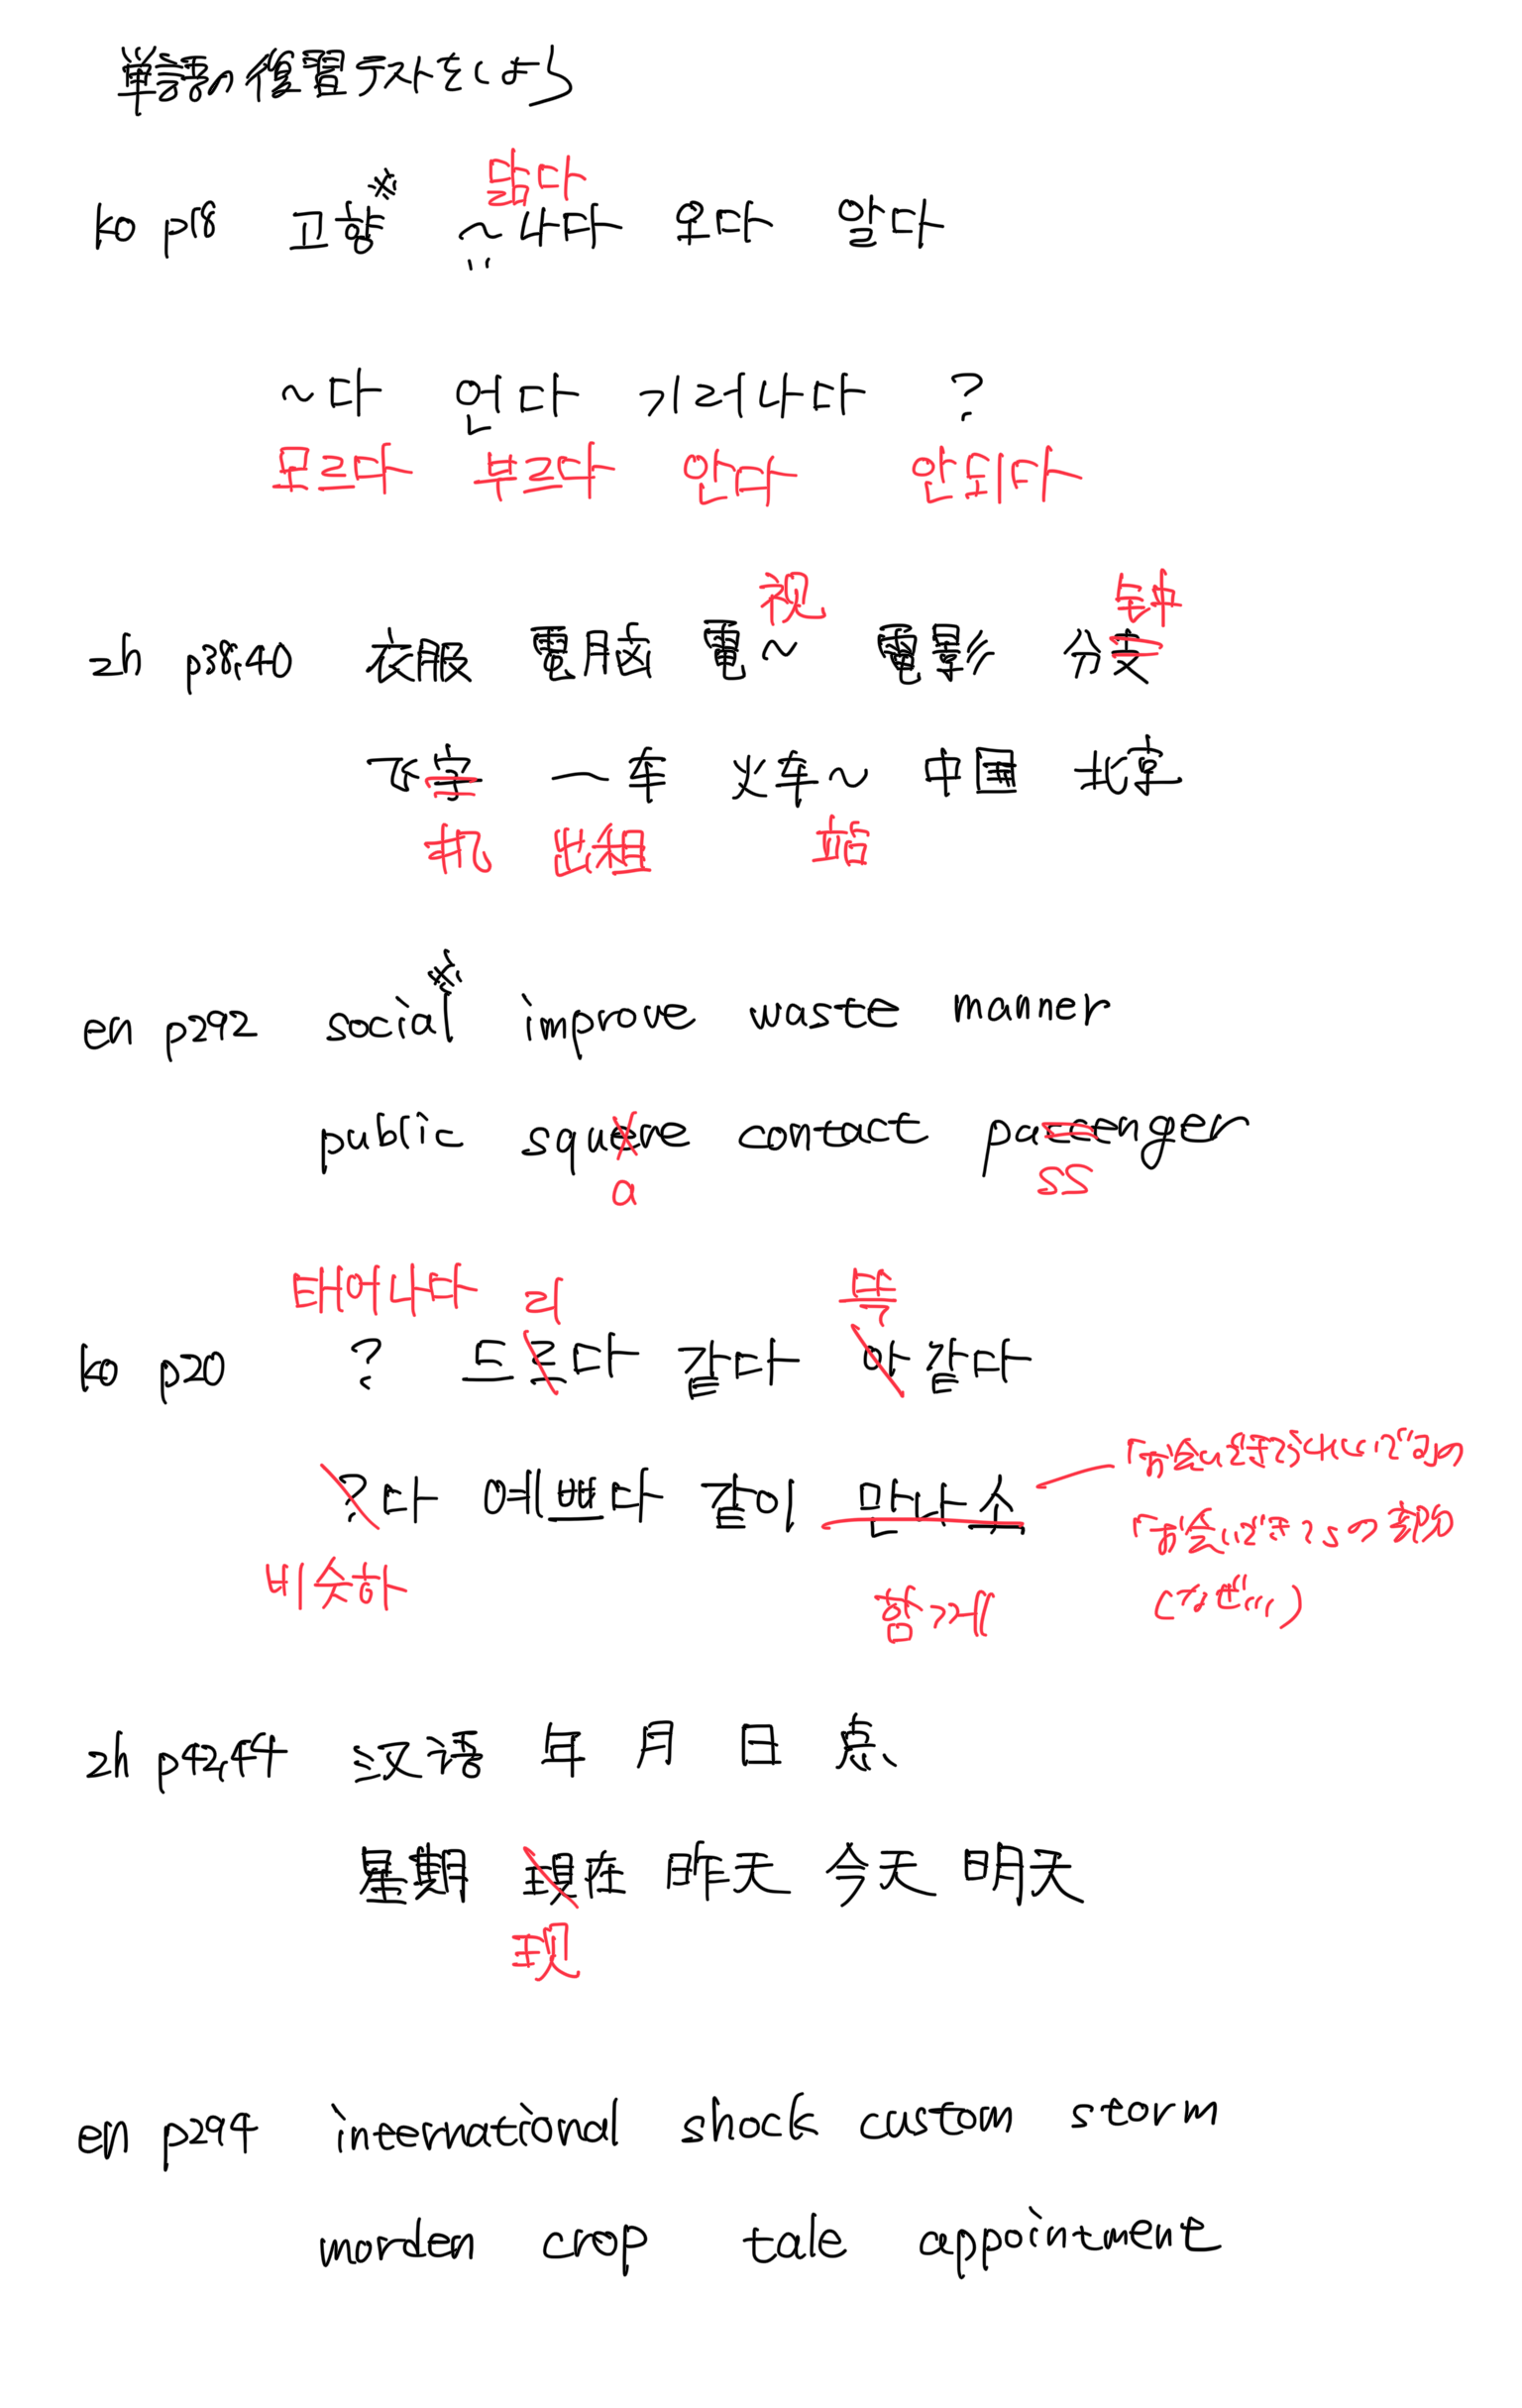 単語の復習テストをしよう
닮다
ko p18 고향※ ~나다 오다 알다
~다 언다 기러나다 ?
모르다 부르다 안다 안되다
视 钟
zh p38,40 衣服 電脳 電~ 電影 分
飞 一车 火车~ 中国 北京
机 出租 站
en p292 social※ improve waste manner
public square contact paccenger
a ss
태어나다 리 똑
ko p20 ? 드르다 같다 아같다
?다 예쁘다 같이 만나소
비슷하 함께
zh p42,44 汉语 年 月 日 点
星期 現在 昨天 今天 明天
现
en p294 international shock custom storm
warden crop tale appointment